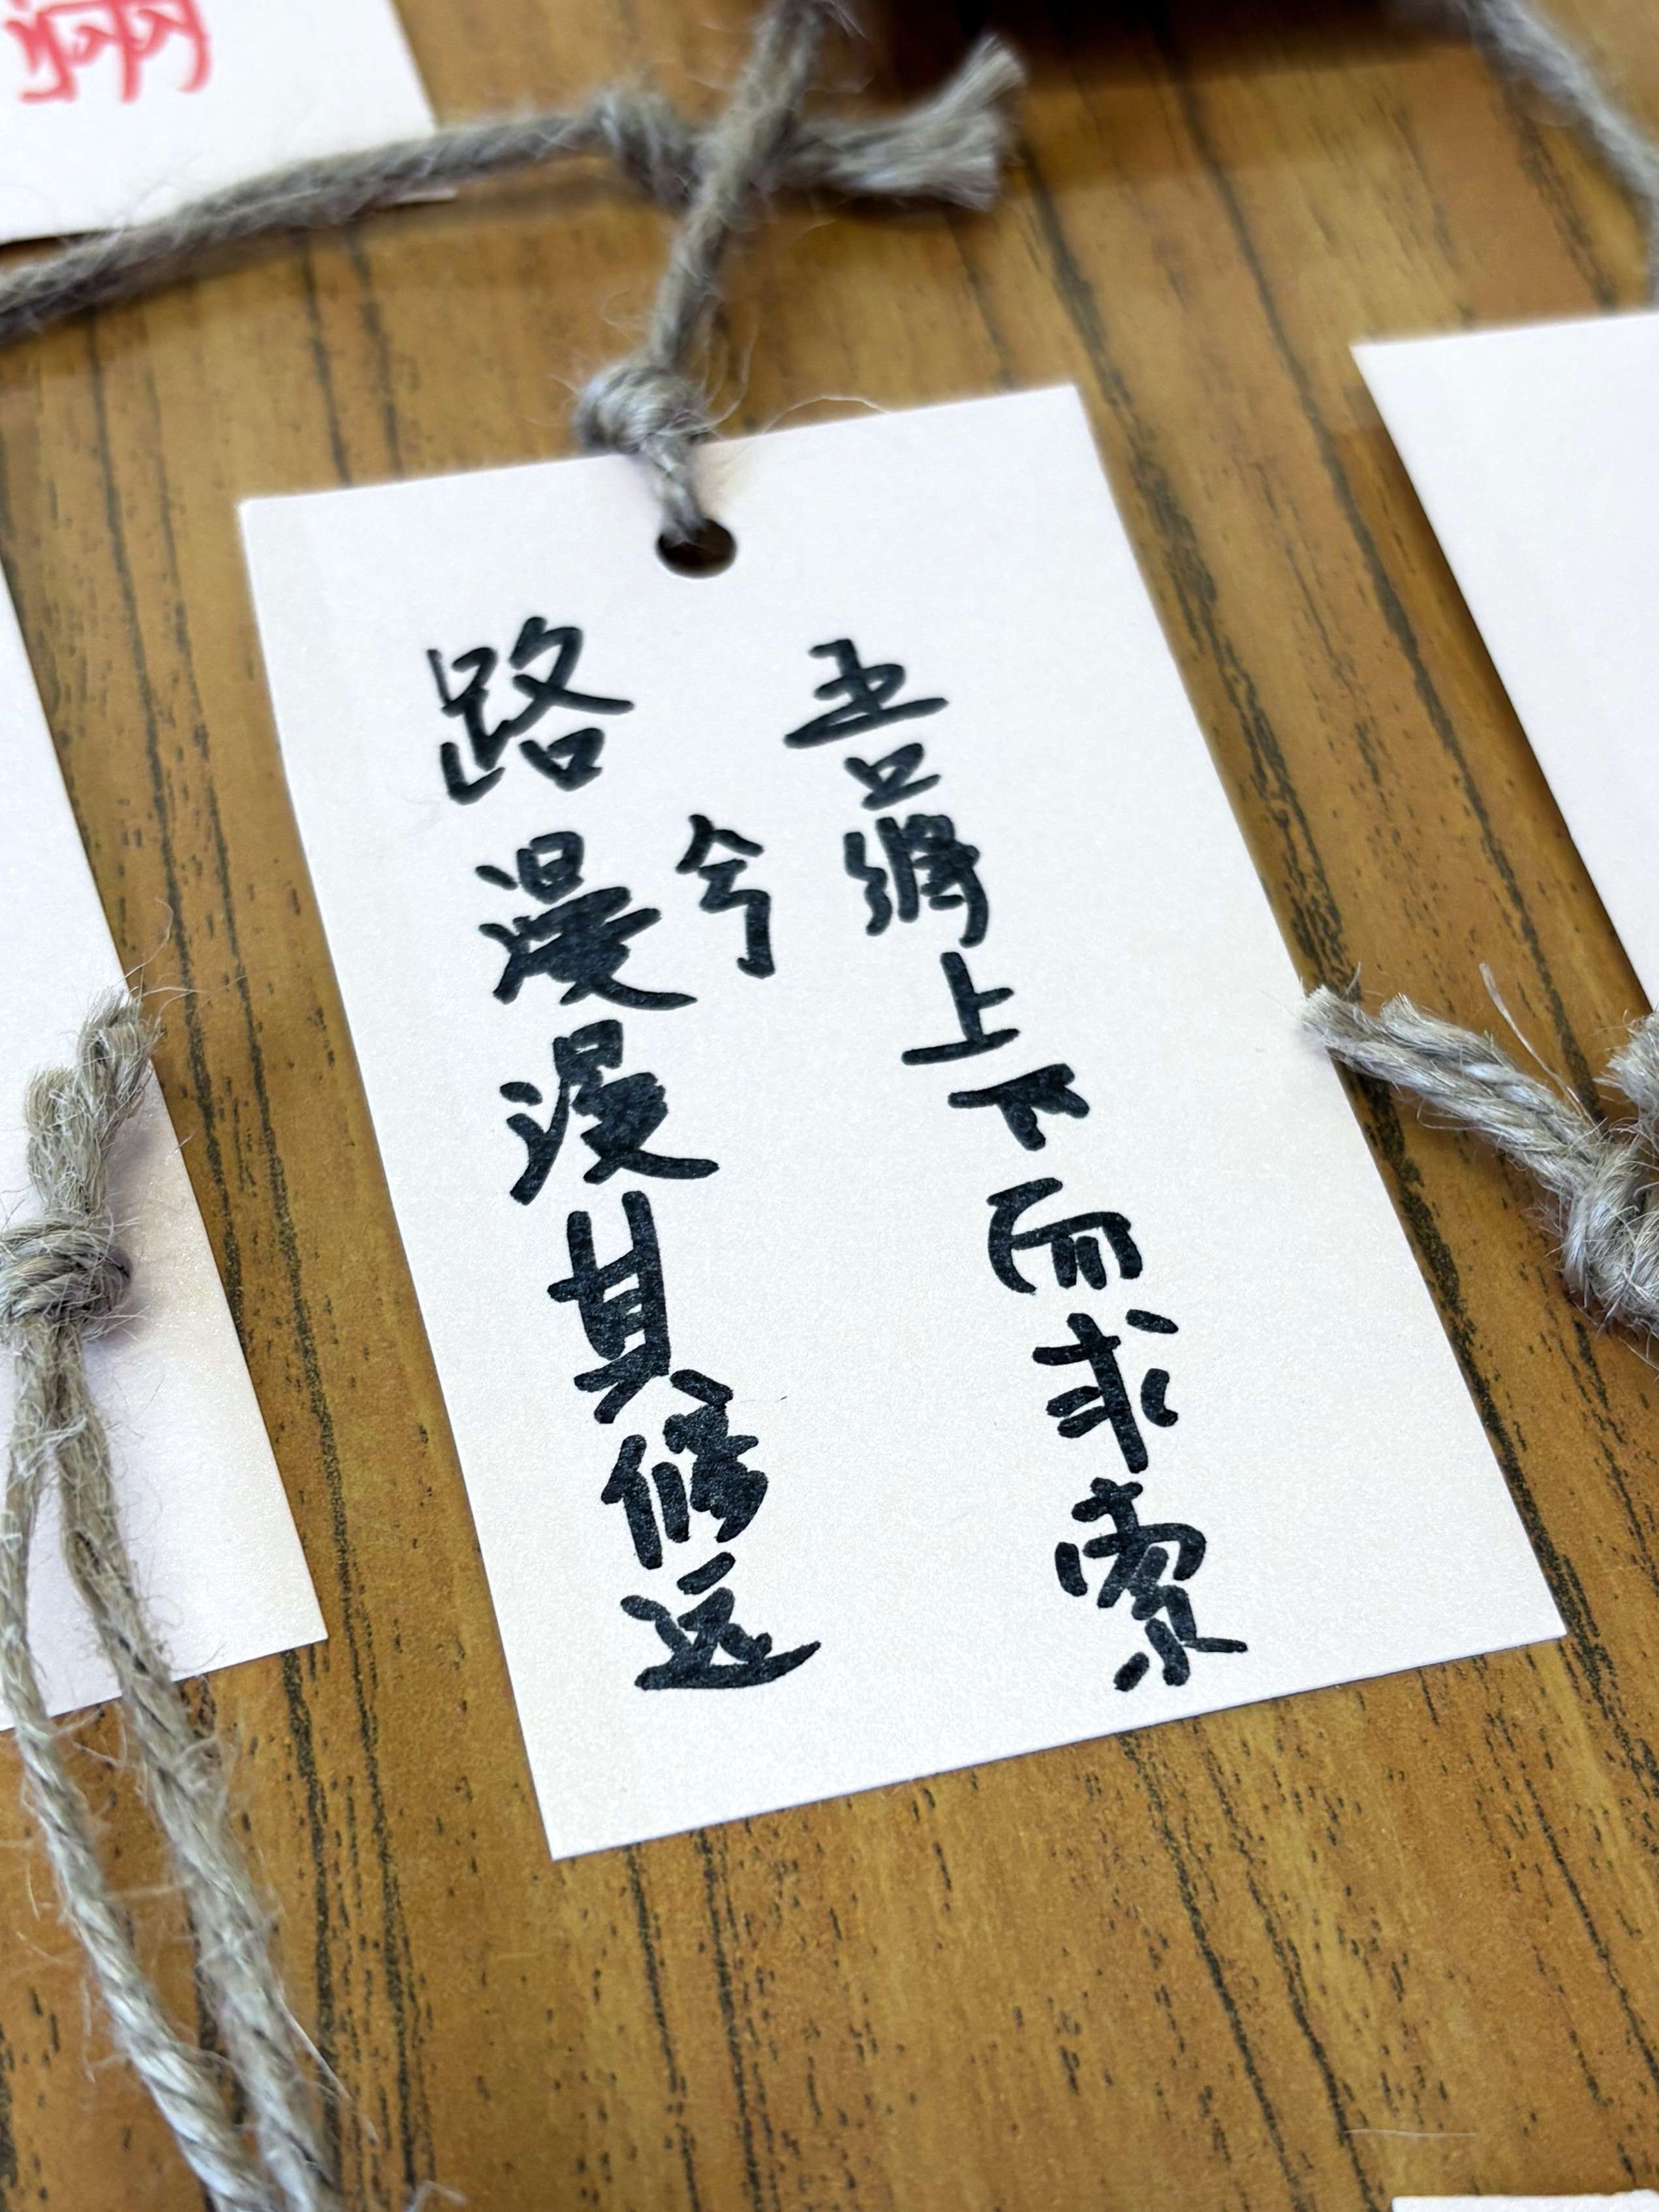 路漫漫其修远
兮
吾将上下而求索